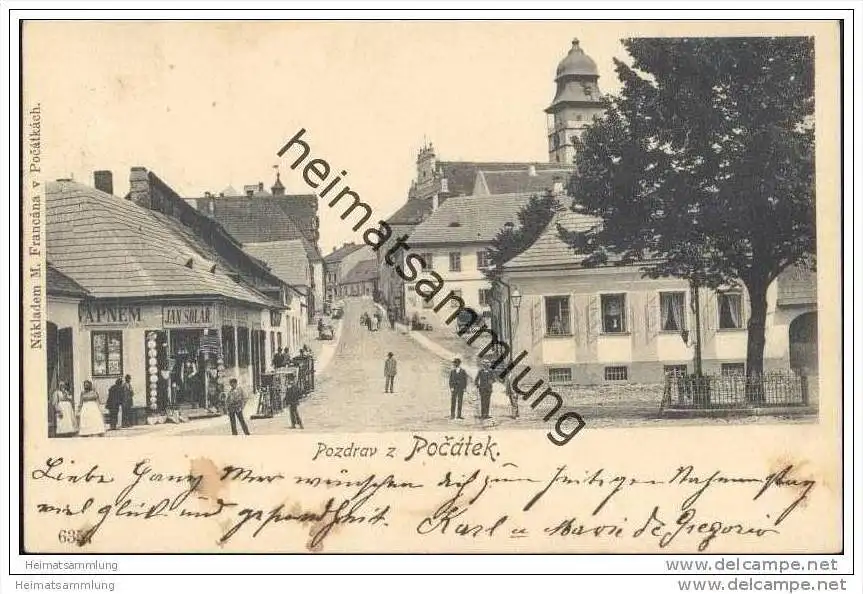 Nákladem M. Francána v Počátkách.
VÁPNEM
JAN SOLAŘ
heimatsammlung.com
Pozdrav z Počátek.
Liebe Wir wünschen dich zum heitigen Nahmenstag
viel glück und gesundtheit. Karl u Marie de Gregorio
635
Heimatsammlung
Heimatsammlung
www.delcampe.net
www.delcampe.net